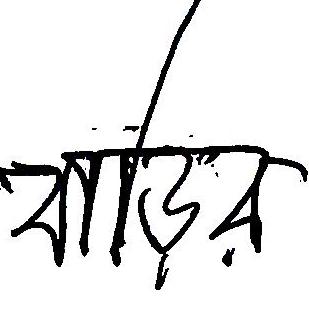 বাড়ির